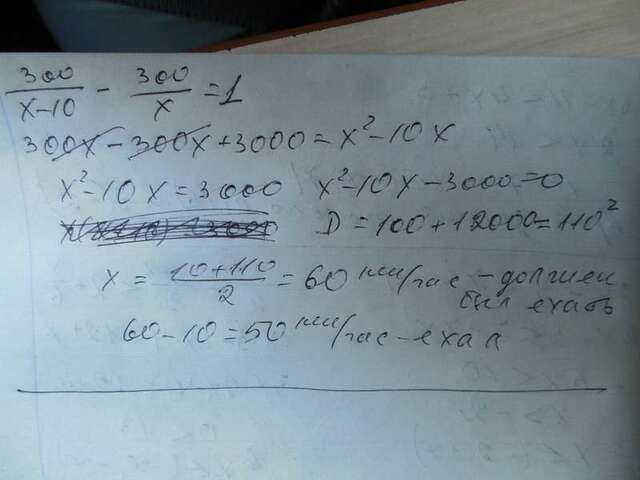 300/(x-10) - 300/x = 1
300x - 300x + 3000 = x² - 10x
x² - 10x = 3000   x² - 10x - 3000 = 0
D = 100 + 12000 = 110²
x = (10+110)/2 = 60 км/час - должен был ехать
60 - 10 = 50 км/час - ехал